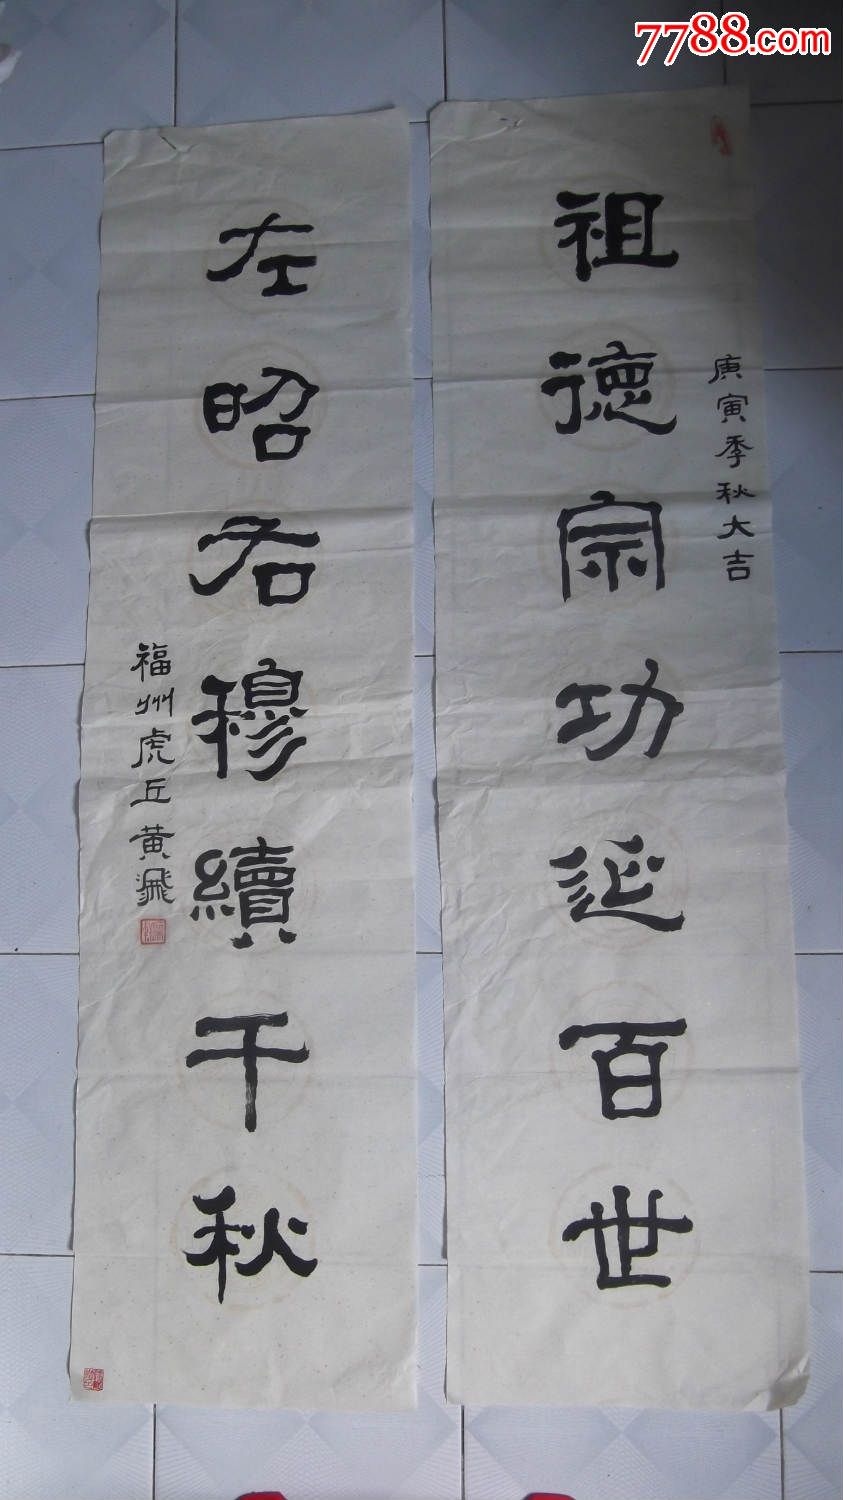 7788.com
庚寅季秋大吉
祖德宗功延百世
左昭右穆續千秋
福州虎丘黄